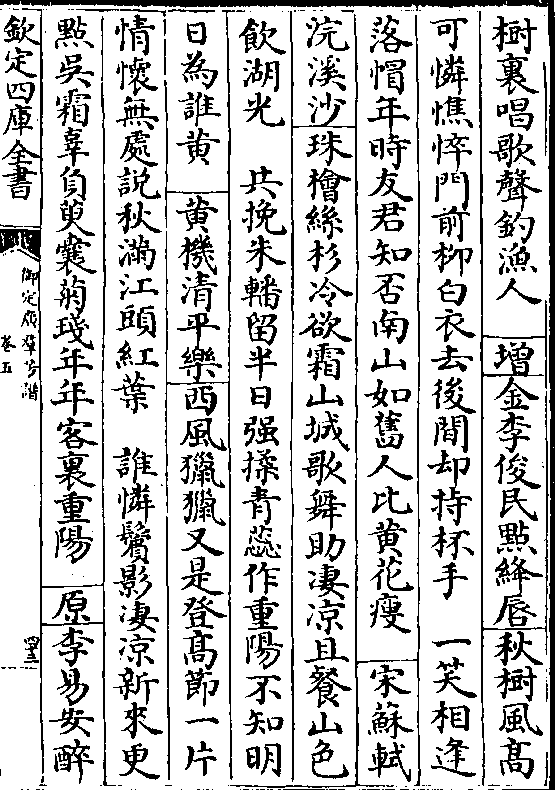 樹裏唱歌聲釣漁人　增金李俊民點絳唇秋樹風髙
可憐憔悴門前柳白衣去後閒却持杯手　一笑相逢
落帽年時友君知否南山如舊人比黄花瘦　宋蘇軾
浣溪沙珠檜絲杉冷欲霜山城歌舞助凄凉且餐山色
飲湖光　共挽朱轓留半日强揉青蕊作重陽不知明
日為誰黄　黄機清平樂西風獵獵又是登髙節一片
情懷無處説秋滿江頭紅葉　誰憐鬢影凄凉新來更
點吳霜辜負萸囊菊琖年年客裏重陽　原李易安醉
欽定四庫全書
御定廣羣芳譜
卷五